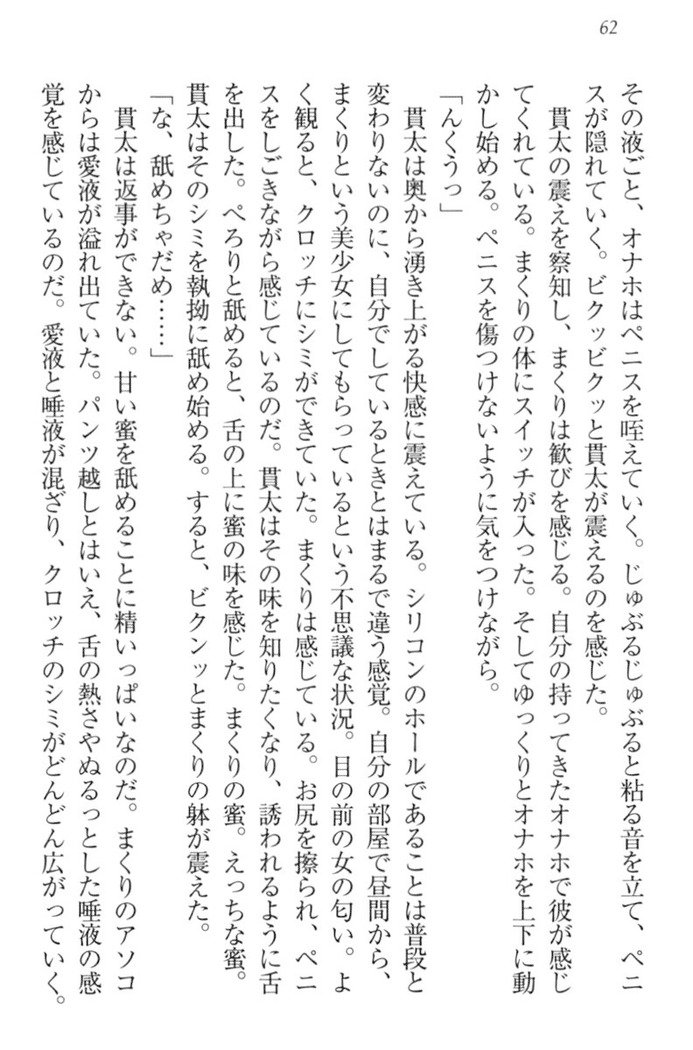 62
その液ごと、オナホはペニスを咥えていく。じゅぶるじゅぶると粘る音を立て、ペニ
スが隠れていく。ビクッビクッと貫太が震えるのを感じた。
貫太の震えを察知し、まくりは歓びを感じる。自分の持ってきたオナホで彼が感じ
てくれている。まくりの体にスイッチが入った。そしてゆっくりとオナホを上下に動
かし始める。ペニスを傷つけないように気をつけながら。
「んくうっ」
貫太は奥から湧き上がる快感に震えている。シリコンのホールであることは普段と
変わりないのに、自分でしているときとはまるで違う感覚。自分の部屋で昼間から、
まくりという美少女にしてもらっているという不思議な状況。目の前の女の匂い。よ
く観ると、クロッチにシミができていた。まくりは感じている。お尻を擦られ、ペニ
スをしごきながら感じているのだ。貫太はその味を知りたくなり、誘われるように舌
を出した。ぺろりと舐めると、舌の上に蜜の味を感じた。まくりの蜜。えっちな蜜。
貫太はそのシミを執拗に舐め始める。すると、ビクンッとまくりの躰が震えた。
「な、舐めちゃだめ……」
貫太は返事ができない。甘い蜜を舐めることに精いっぱいなのだ。まくりのアソコ
からは愛液が溢れ出ていた。パンツ越しとはいえ、舌の熱さやぬるっとした唾液の感
覚を感じているのだ。愛液と唾液が混ざり、クロッチのシミがどんどん広がっていく。